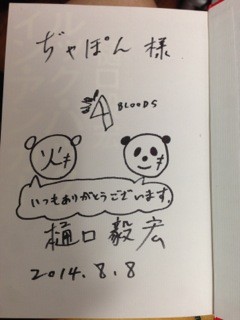 ぢゃぽん 様
BLOODS
いつもありがとうございます。
樋口毅宏
2014.8.8